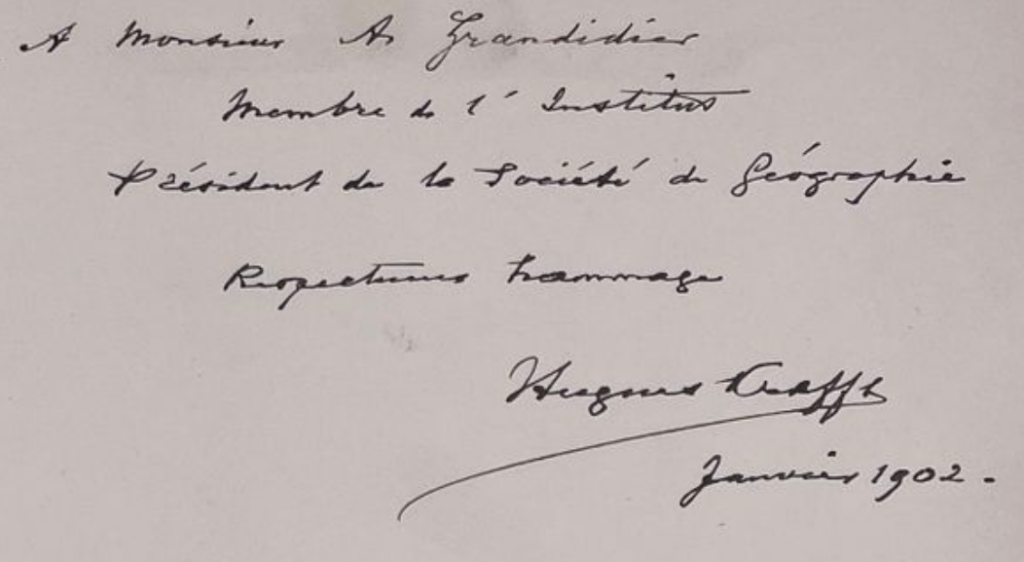 A Monsieur A. Grandidier
Membre de l'Institut
Président de la Société de Géographie
Respectueux hommage
Hugues Krafft
Janvier 1902.